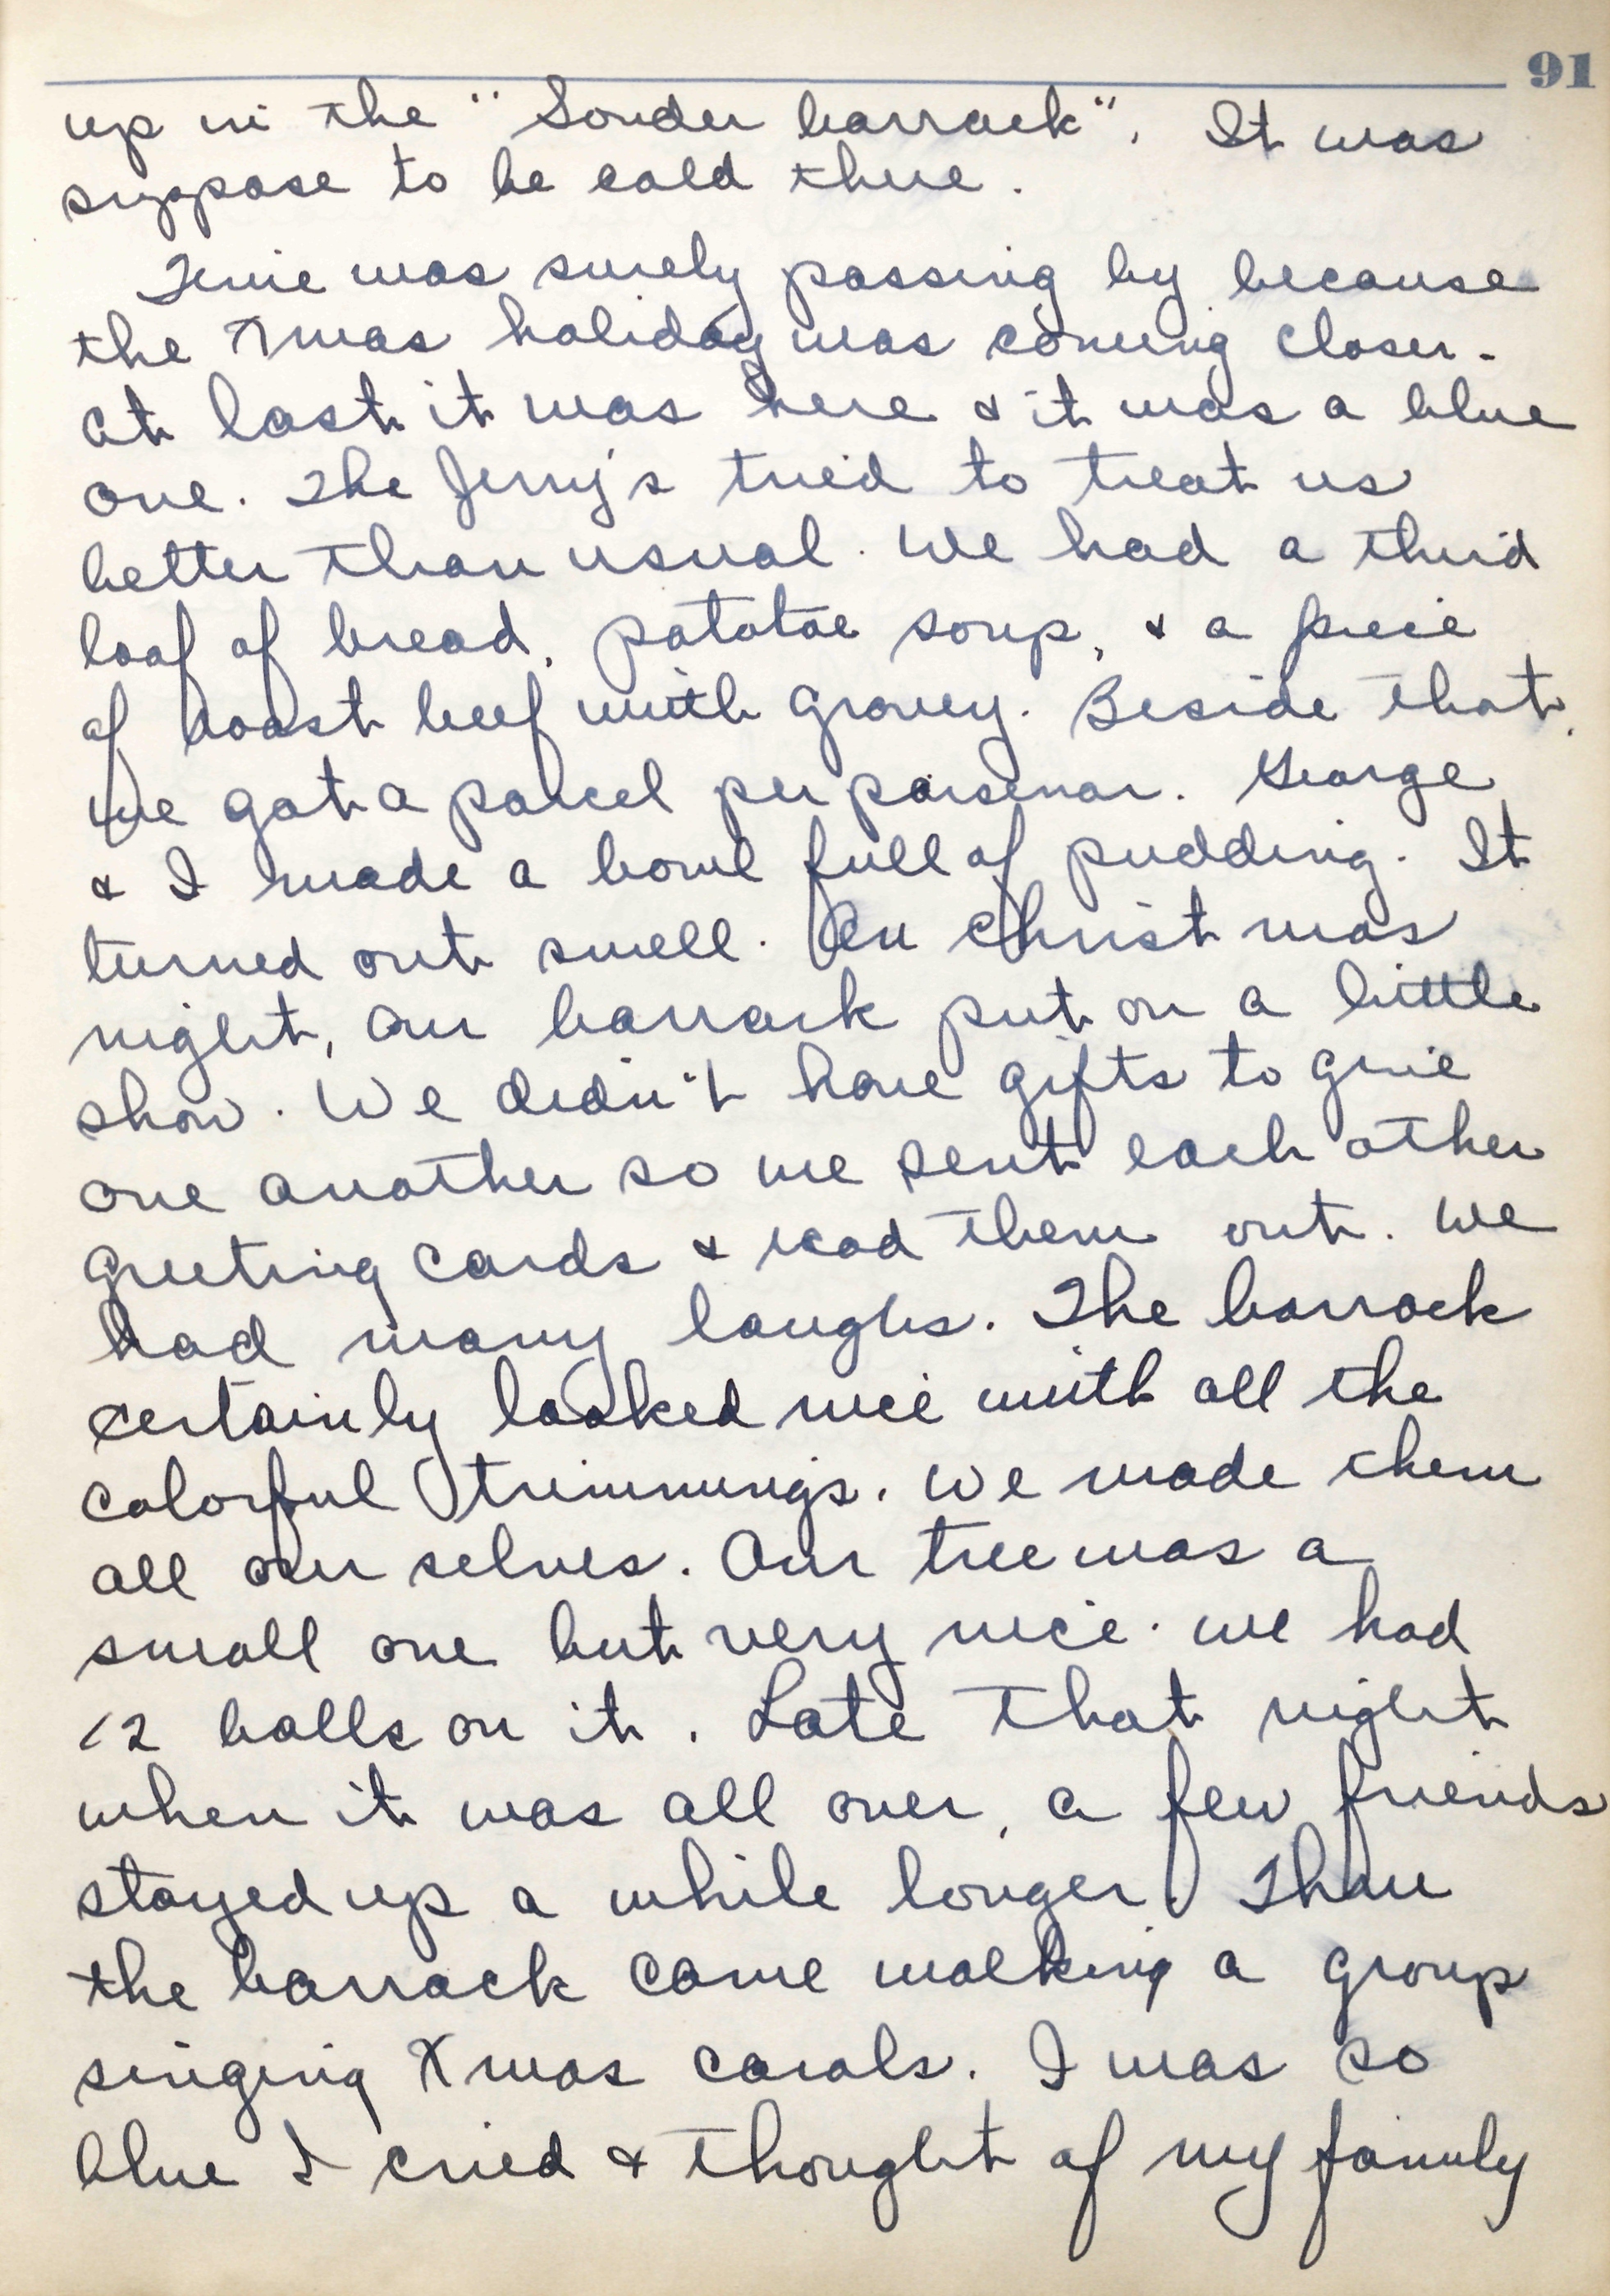 91
up in the "Sonder barrack". It was
suppose to be cold there.
Time was surely passing by because
the Xmas holiday was coming closer.
At last it was here & it was a blue
one. The Jerry's tried to treat us
better than usual. We had a third
loaf of bread, potatoe soup, & a piece
of roast beef with gravey. Beside that,
we got a parcel per parsenor. George
& I made a bowl full of pudding. It
turned out swell. On Christmas
night, our barrack put on a little
show. We didn't have gifts to give
one another so we sent each other
greeting cards & read them out. We
had many laughs. The barrack
certainly looked nice with all the
colorful trimmings. We made them
all our selves. Our tree was a
small one but very nice. We had
12 balls on it. Late that night
when it was all over, a few friends
stayed up a while longer. Thru
the barrack came walking a group
singing Xmas carols. I was so
blue I cried & thought of my family